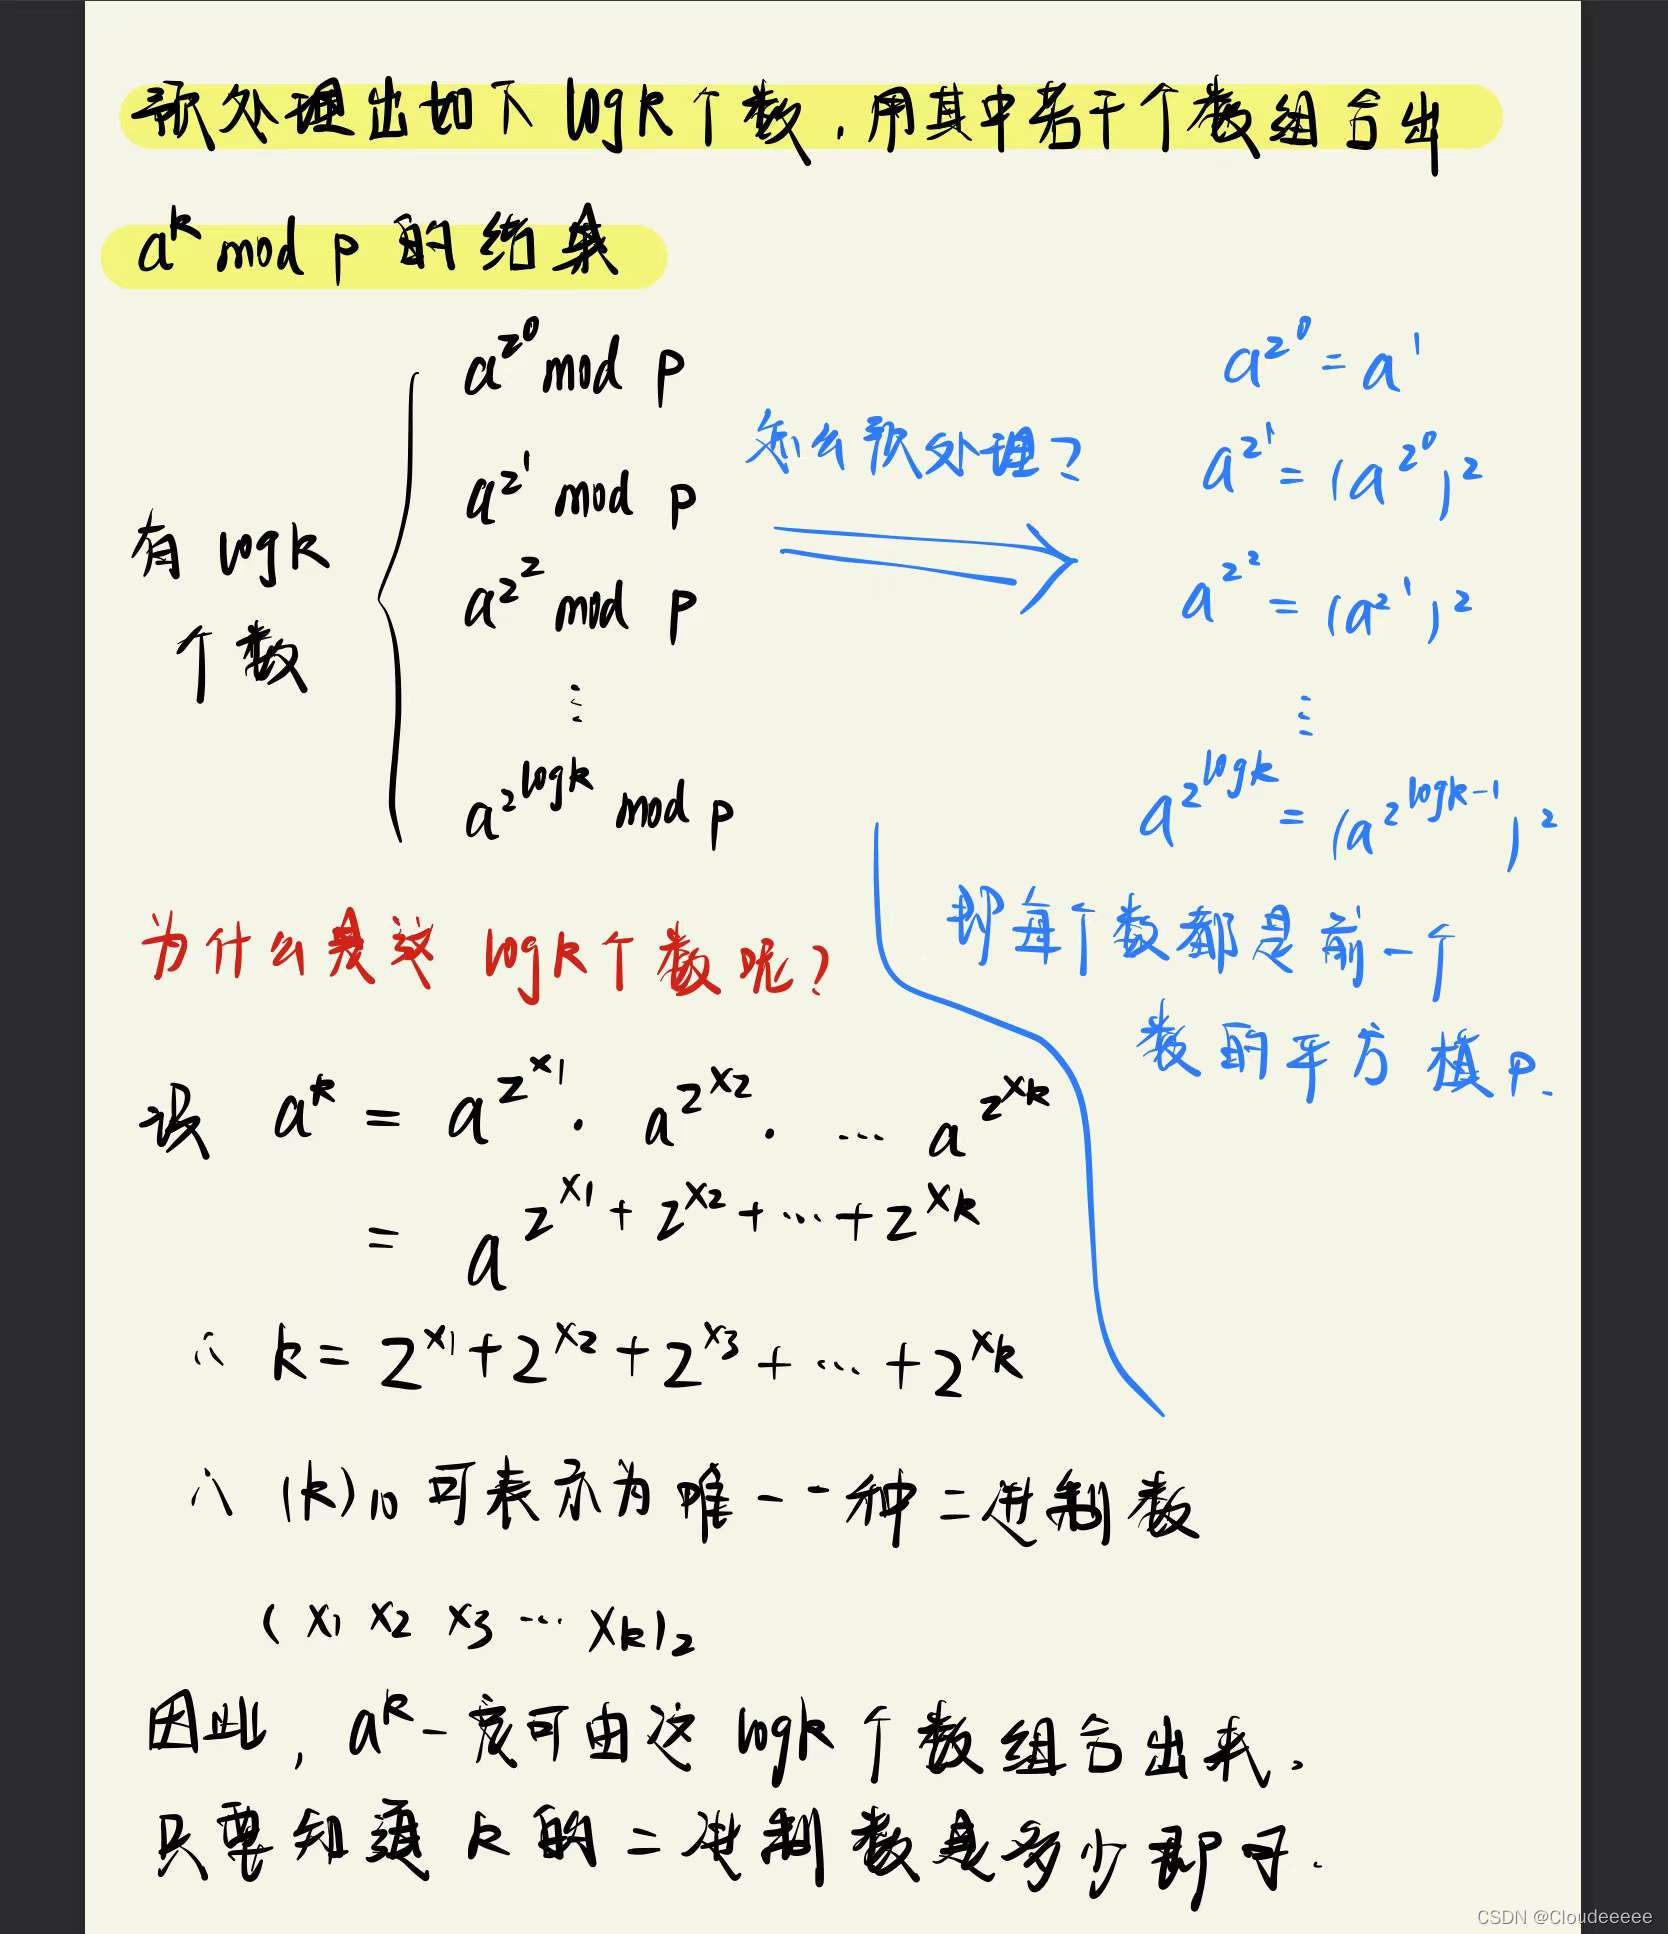 预处理出如下 logk个数，用其中若干个数组合出
a^k mod p 的结果
有 logk
个数
a^{2^0} mod p
a^{2^1} mod p
a^{2^2} mod p
⋮
a^{2^{logk}} mod p
怎么预处理？
a^{2^0} = a^1
a^{2^1} = (a^{2^0})^2
a^{2^2} = (a^{2^1})^2
⋮
a^{2^{logk}} = (a^{2^{logk-1}})^2
即每个数都是前一个
数的平方模p.
为什么是这 logk个数呢？
设 a^k = a^{2^{x1}} · a^{2^{x2}} · … a^{2^{xk}}
= a^{2^{x1} + 2^{x2} + … + 2^{xk}}
∴ k = 2^{x1} + 2^{x2} + 2^{x3} + … + 2^{xk}
∴ (k)_{10} 可表示为唯一一种二进制数
(x1 x2 x3 … xk)_2
因此, a^k一定可由这 logk 个数组合出来.
只要知道 k 的二进制数是多少即可.
CSDN @Cloudeeeee